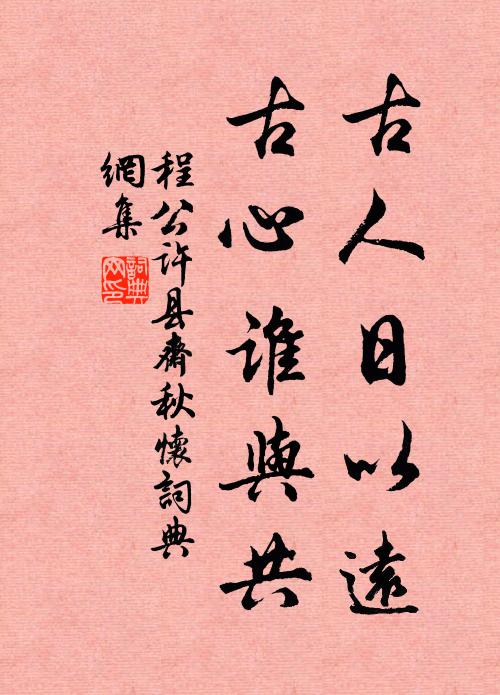 古人日以遠
古心誰與共
程公许县齋秋懷詞典
網集
詞典網印